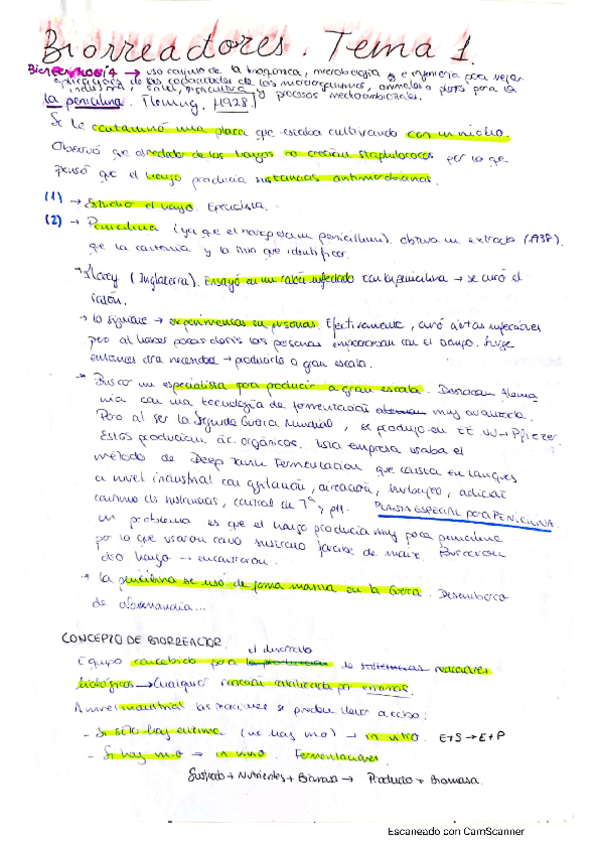 Biorreactores. Tema 1.
Biotecnología → uso conjunto de la bioquímica, microbiología e ingeniería para
de las capacidades de los microorganismos, para la
industria, salud, agricultura y procesos medioambientales.
la penicilina. Fleming. 1928.
Se le contaminó una placa que estaba cultivando con un nicho.
Observó que alrededor de los hongos no crecían Staphylococos por lo que
pensó que el hongo producía sustancias antimicrobianas.
(1) → Estudió el hongo.
(2) → Penicilina (ya que el hongo era penicillium). obtuvo un extracto (1938).
que la contenía y la tuvo que identificar.
→ Florey (Inglaterra). Ensayó en un ratón infectado con la penicilina → se curó el
ratón.
→ lo siguiente → experimentos en personas. Efectivamente, curó infecciones
pero al haber pocas dosis las personas empeoraban con el tiempo. Surge
entonces otra necesidad → producirlo a gran escala.
→ Buscar un especialista para producir a gran escala. Destacan Alema
nia con una tecnología de fermentación muy avanzada.
Pero al ser la Segunda Guerra Mundial, se produjo en EE.UU → Pfizer.
Estos producían ác. orgánicos. Esta empresa usaba el
método de Deep Tank Fermentacion que consta en tanques
a nivel industrial con agitación, aireación, adición
continua de sustancias, control de Tª y pH. PLANTA ESPECIAL PARA PENICILINA
un problema es que el hongo producía muy poca penicilina
por lo que usaron como sustrato jarabe de maíz. Buscaron
otro hongo → encontraron.
→ la penicilina se usó de forma masiva en la Guerra. Desembarco
de Normandía...
CONCEPTO DE BIORREACTOR.
el desarrollo
Equipo concebido para la producción de sustancias reacciones
biológicas → Cualquier reacción catalizada por enzimas.
A nivel industrial las reacciones se pueden llevar a cabo:
- Si sólo hay enzima (no hay mo) → in vitro. E+S → E+P
- Si hay mo → in vivo. Fermentaciones.
Sustrato + Nutrientes + Biomasa → Producto + Biomasa.
Escaneado con CamScanner